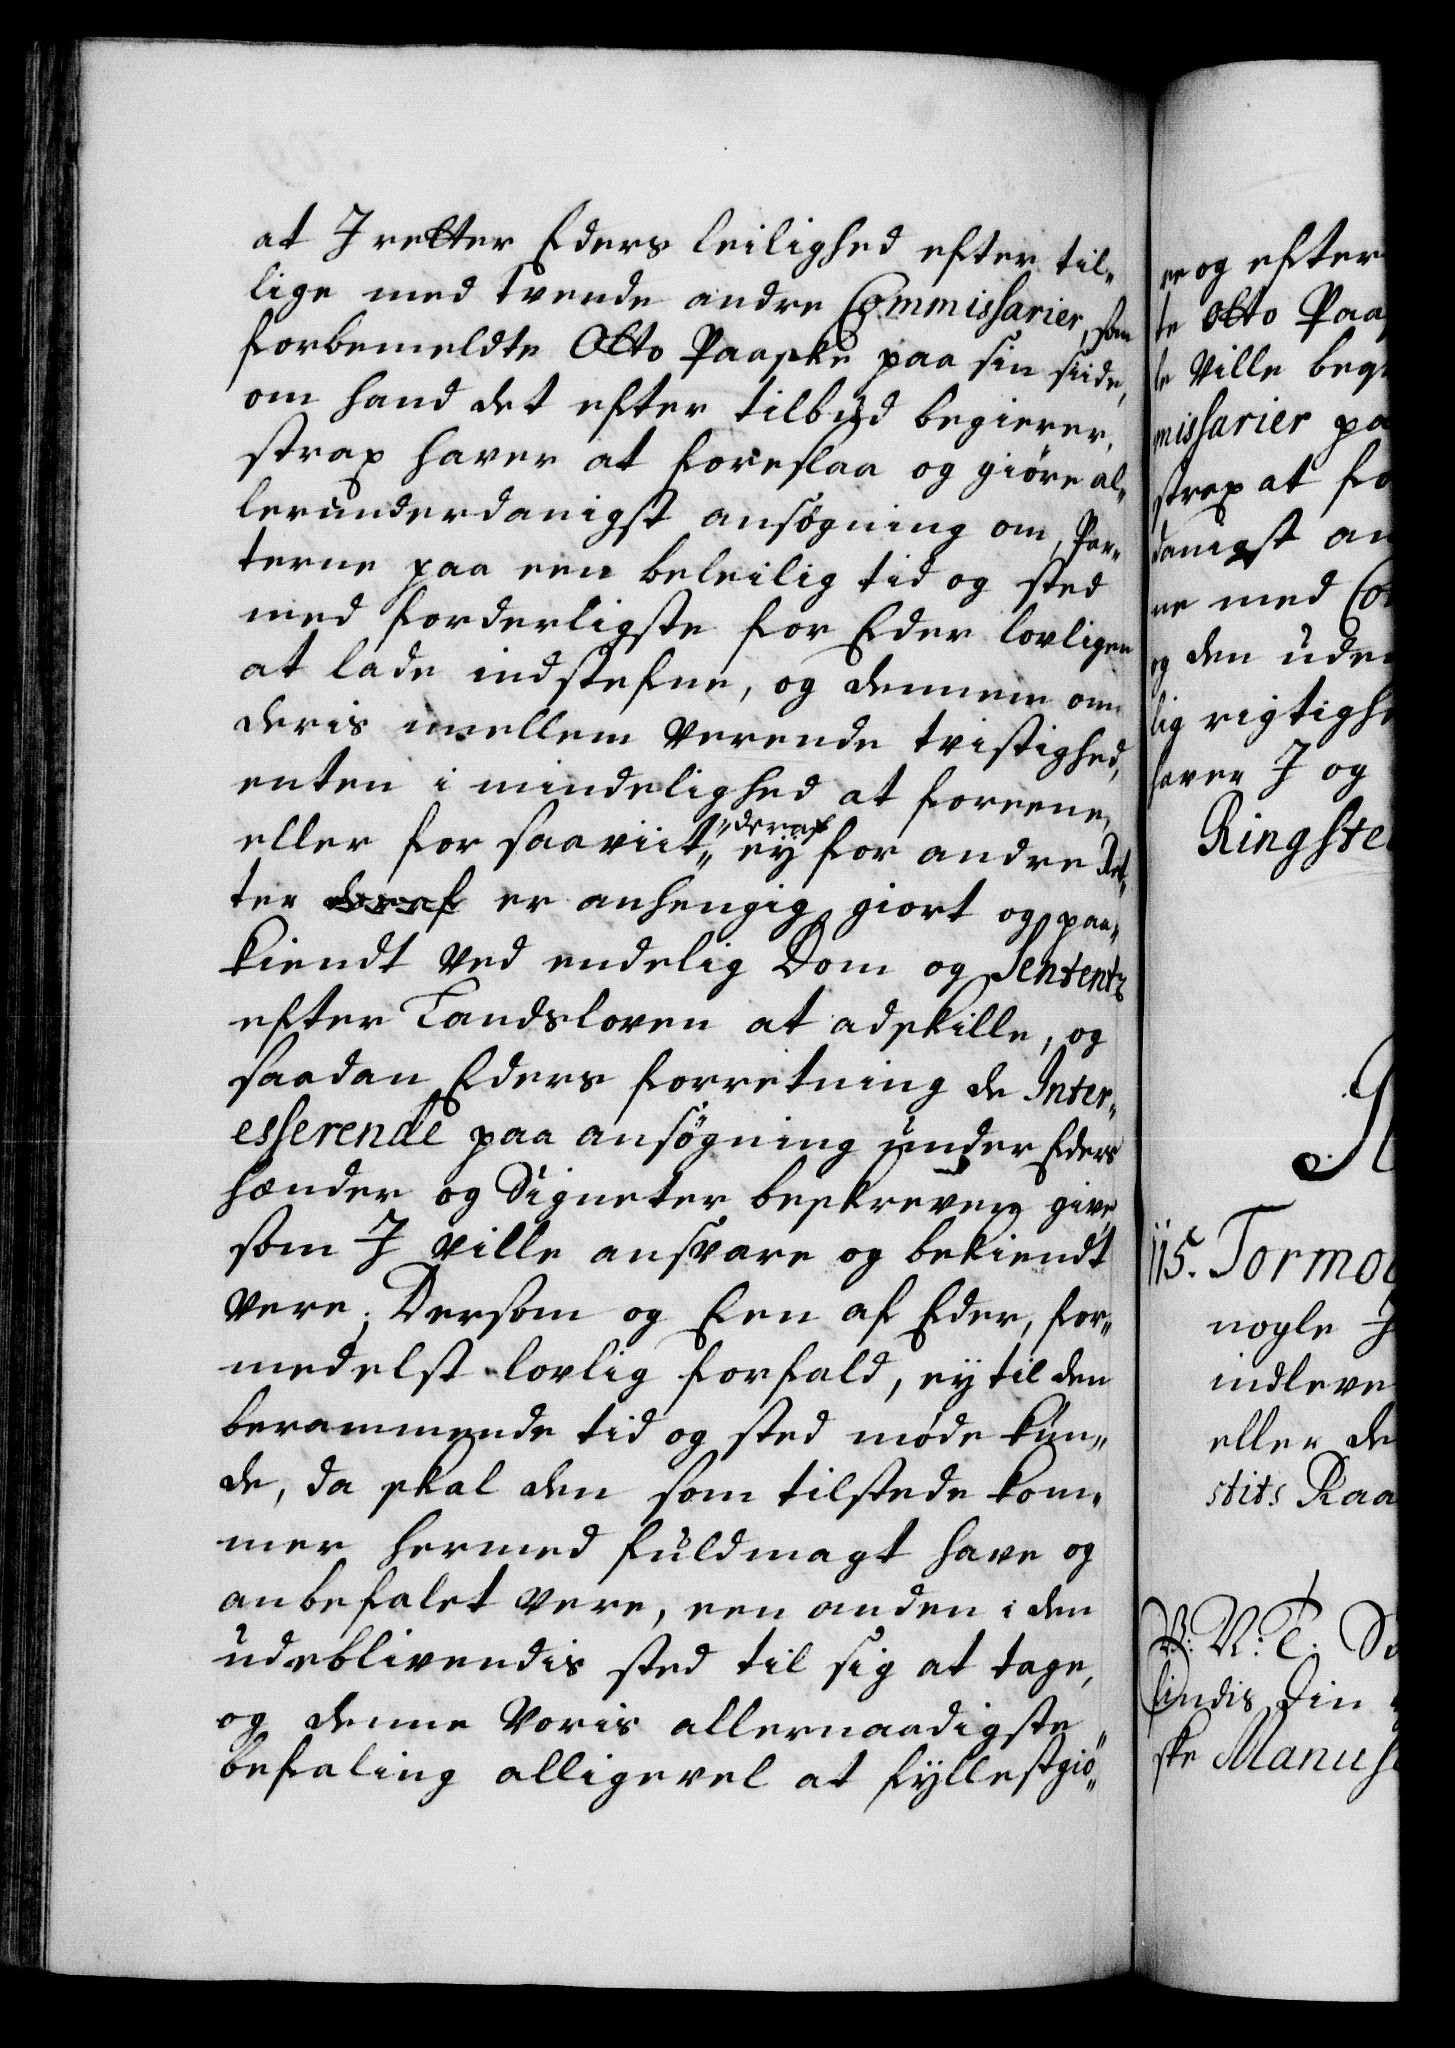 at I retter Eders leilighed efter til„
lige med tvende andre Commissarier, som
forbemeldte Otto Paaske paa sin siide,
om hand det efter tilbud begierer,
strax haver at foreslaa og giøre al„
lerunderdanigst ansøgning om, Par„
terne paa een beleilig tid og sted
med forderligste for Eder lovligen
at lade indstefne, og dennem om
deris imellem verende tvistighed,
enten i mindelighed at foreene,
eller for saaviit„ "deraf ey for andre Ret„
ter deraf er anhengig giort og paa„
kiendt ved endelig Dom og Sententz
efter Landsloven at adskille, og
saadan Eders forretning de Inter„
esserende paa ansøgning under Eders
hænder og Signeter beskreven give,
som I ville ansvare og bekiendt
vere. Dersom og Een af Eder, for„
medelst lovlig forfald, ey til den
berammende tid og sted møde kun„
de, da skal den som tilstede kom„
mer hermed fuldmagt have og
anbefalet vere, een anden i den
udeblivendis sted til sig at tage,
og denne Voris allernaadigste
befaling alligevel at fyllestgiø„
re og efter
te Otto Paa
le ville beg
missarier pa
strax at fo
danigst an
re med Co
og den uden
lig rigtighe
haver I og
Ringste
115. Tormo
nogle I
indleve
eller de
stits Raa
V. N. T. So
lindis Din
ske Manusc